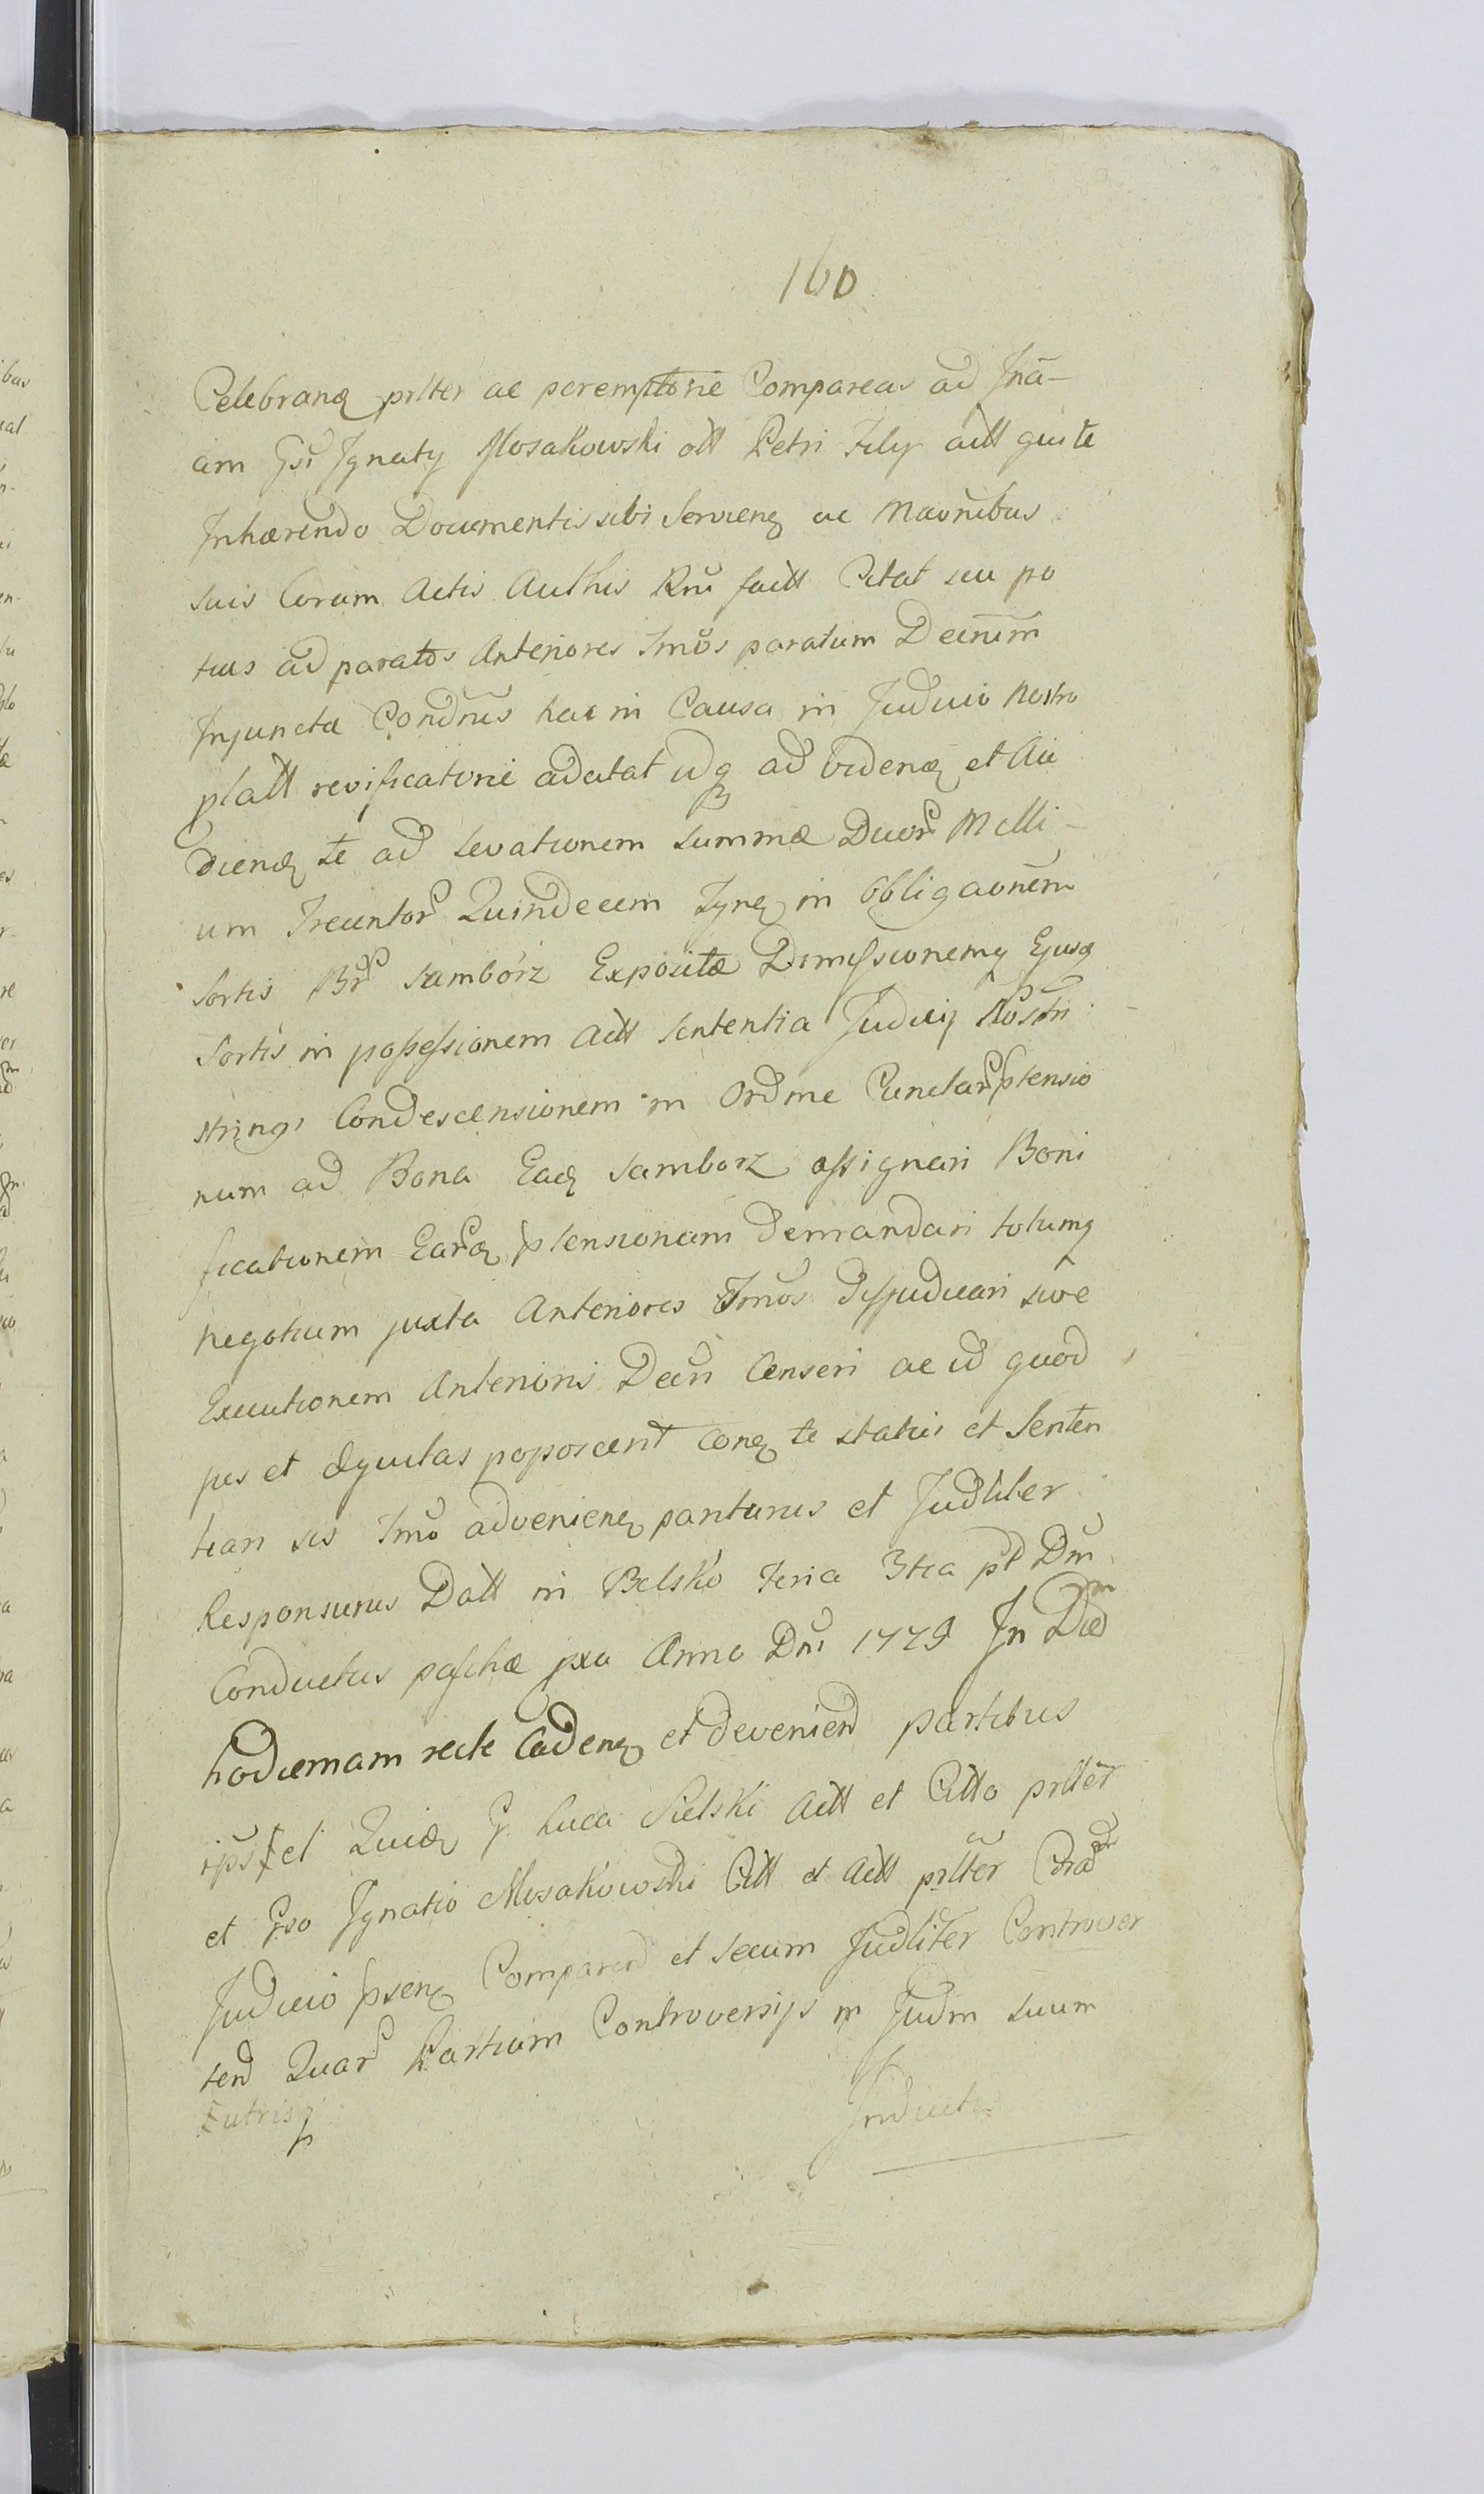 160
Celebranq prlter ae peremptorie Compareas ad Jnã-
am Gsi Jgnaty Mosakowski ott Petri Fily actt qui te
Jnhærendo Documentis sibi Servienq ac Maõnibus
suis Coram Actis Authis Rnĩ factt Citat seu po
tius ad paratos Anteriores Tmõs paratum Decnum
Jnjunctæ Condnis hac in Causa in Judicio Nostro
platt revificatorie adcitat idq ad videnq et Au
dienq te ad levationem summæ Duorũ Milli-
um Trecentorũ Quindecem Tynq in Obligaõnem
Sortis Brũ Sambórz Expositæ Dimissionemq Ejusq
Sortis in possessionem Actt Sententia Judicij Nostri
stringi Condescensionem in Ordine Cunctarũ ptensio
num ad Bona Eadq Samborz assignari Boni
ficationem Earq ptensionum Demandari totumq
negotium juxta Anteriores Tmõs Disjudicari sive
Executionem Anterioris Decri Censeri ae id quod
jus et Æquitas poposcerit Conq te statui et Senten
tiari sis Tmo advenienq pariturus et Judtliter
Responsurus Datt in Belsko Feria 3tia pt Dm
Conductus paschæ pxa Anno Dni 1779 Jn Diem
hodiernam recte Cadenq et devenienq partibus
ipst et Quidq G. Luca Sielski Actt et Citto prltér
et Gso Jgnatio Mosakowski Citt et Actt prltér Corã
Judicio psenq Comparend et secum Judlitér Controver
tend Quarũ Partium Controversijs in Judm suum
Eutrisq
Jnductis